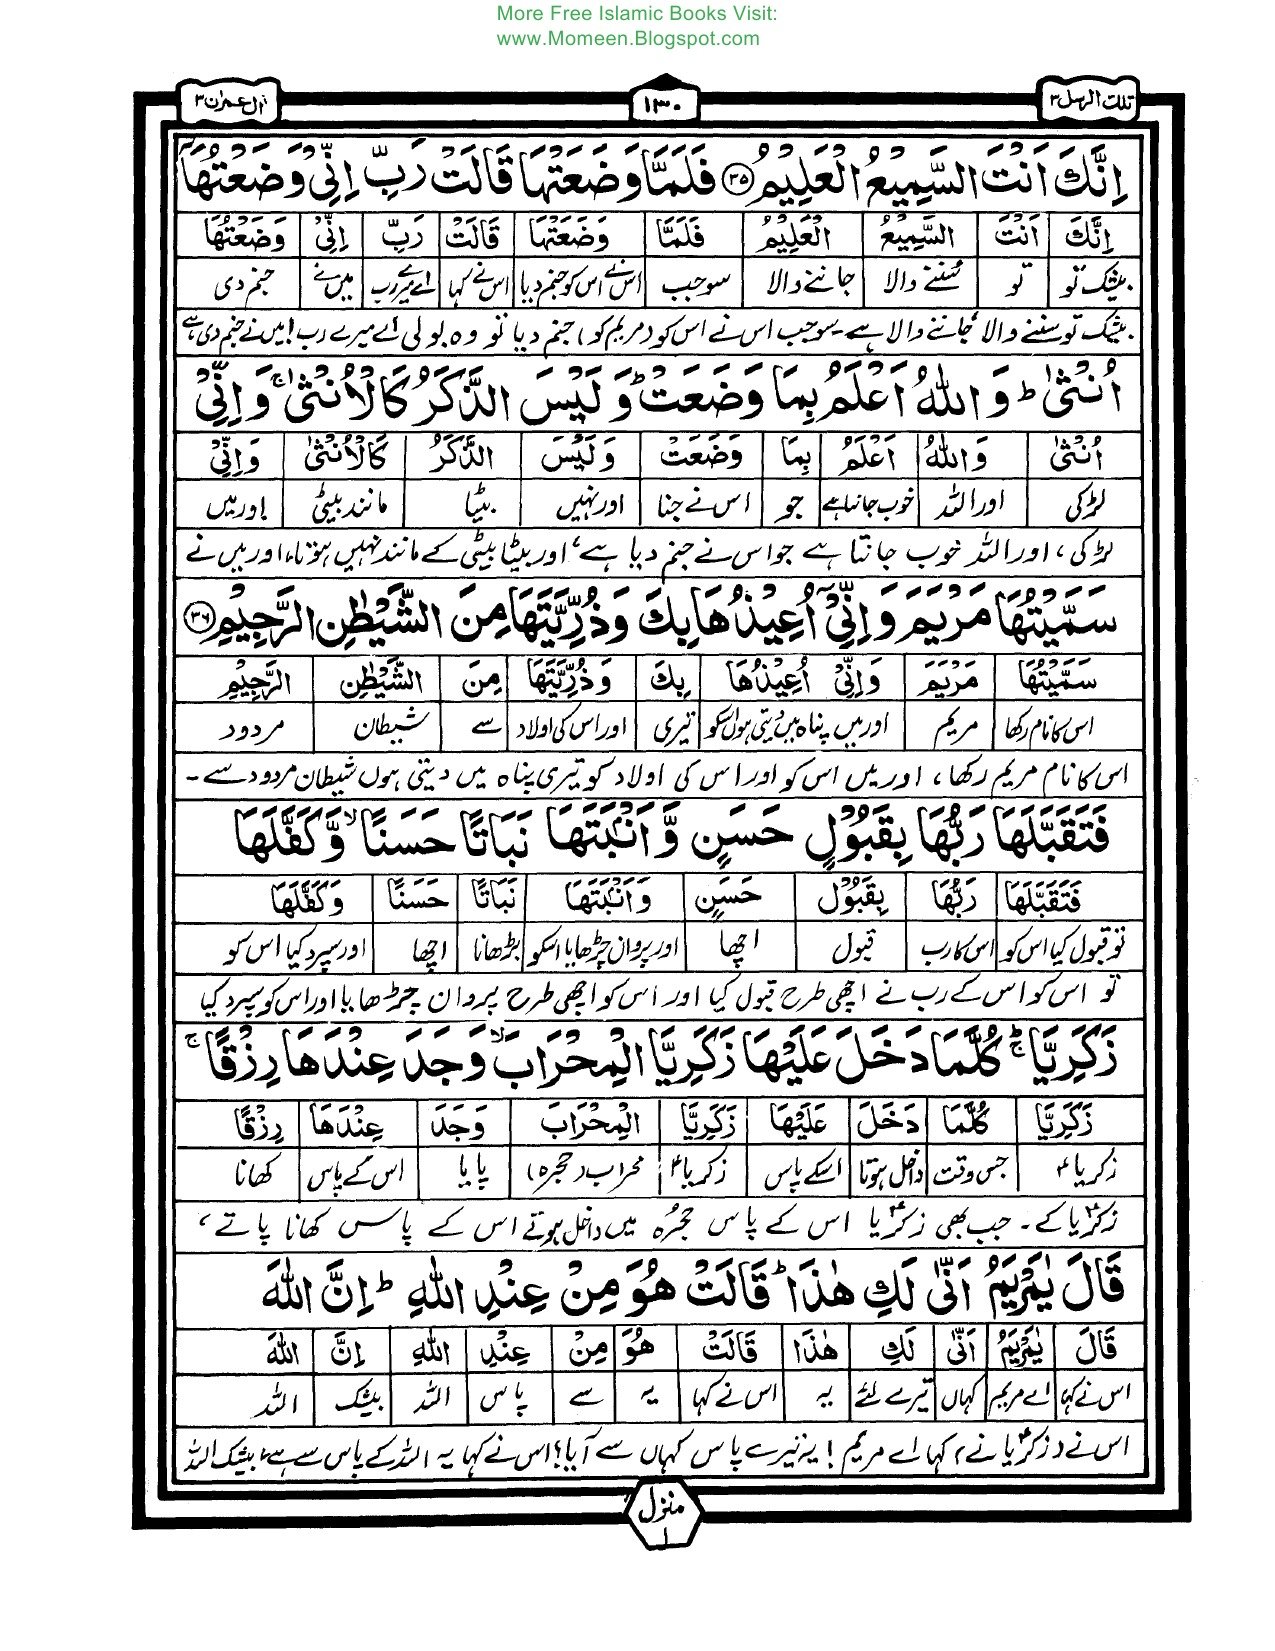 More Free Islamic Books Visit:
www.Momeen.Blogspot.com
تلك الرسل ٣
١٣٠
اٰل عمران ٣
اِنَّكَ اَنْتَ السَّمِيْعُ الْعَلِيْمُ ۝٣٥ فَلَمَّا وَضَعَتْهَا قَالَتْ رَبِّ اِنِّىْ وَضَعْتُهَاۤ
اِنَّكَ اَنْتَ السَّمِيْعُ الْعَلِيْمُ فَلَمَّا وَضَعَتْهَا قَالَتْ رَبِّ اِنِّىْ وَضَعْتُهَا
بیشک تو تو سُننے والا جاننے والا سو جب اس نے اس کو جنم دیا اس نے کہا اے میرے رب میں نے جنم دی
بیشک تو سننے والا جاننے والا ہے۔ سو جب اس نے اس کو (مریم کو) جنم دیا تو وہ بولی اے میرے رب! میں نے جنم دی ہے
اُنْثٰىؕ وَ اللّٰهُ اَعْلَمُ بِمَا وَضَعَتْؕ وَ لَيْسَ الذَّكَرُ كَالْاُنْثٰىۚ وَ اِنِّىْ
اُنْثٰى وَ اللّٰهُ اَعْلَمُ بِمَا وَضَعَتْ وَ لَيْسَ الذَّكَرُ كَالْاُنْثٰى وَ اِنِّىْ
لڑکی اور اللہ خوب جانتا ہے جو اس نے جنا اور نہیں بیٹا مانند بیٹی اور میں
لڑکی، اور اللہ خوب جانتا ہے جو اس نے جنم دیا ہے، اور بیٹا بیٹی کے مانند نہیں ہوتا، اور میں نے
سَمَّيْتُهَا مَرْيَمَ وَ اِنِّىْۤ اُعِيْذُهَا بِكَ وَ ذُرِّيَّتَهَا مِنَ الشَّيْطٰنِ الرَّجِيْمِ ۝٣٦
سَمَّيْتُهَا مَرْيَمَ وَ اِنِّىْ اُعِيْذُهَا بِكَ وَ ذُرِّيَّتَهَا مِنَ الشَّيْطٰنِ الرَّجِيْمِ
اس کا نام رکھا مریم اور میں پناہ میں دیتی ہوں اسکو تیری اور اس کی اولاد سے شیطان مردود
اس کا نام مریم رکھا، اور میں اس کو اور اس کی اولاد کو تیری پناہ میں دیتی ہوں شیطان مردود سے۔
فَتَقَبَّلَهَا رَبُّهَا بِقَبُوْلٍ حَسَنٍ وَّ اَنْۢبَتَهَا نَبَاتًا حَسَنًاۙ وَّ كَفَّلَهَا
فَتَقَبَّلَهَا رَبُّهَا بِقَبُوْلٍ حَسَنٍ وَ اَنْۢبَتَهَا نَبَاتًا حَسَنًا وَ كَفَّلَهَا
تو قبول کیا اس کو اس کا رب قبول اچھا اور پروان چڑھایا اسکو بڑھانا اچھا اور سپرد کیا اس کو
تو اس کو اس کے رب نے اچھی طرح قبول کیا اور اس کو اچھی طرح پروان چڑھایا اور اس کو سپرد کیا
زَكَرِيَّاؕۚ كُلَّمَا دَخَلَ عَلَيْهَا زَكَرِيَّا الْمِحْرَابَۙ وَجَدَ عِنْدَهَا رِزْقًاۚ
زَكَرِيَّا كُلَّمَا دَخَلَ عَلَيْهَا زَكَرِيَّا الْمِحْرَابَ وَجَدَ عِنْدَهَا رِزْقًا
زکریاؑ جس وقت داخل ہوتا اسکے پاس زکریاؑ محراب (حجرہ) پایا اس کے پاس کھانا
زکریاؑ کے۔ جب بھی زکریاؑ اس کے پاس حجرُہ میں داخل ہوتے اس کے پاس کھانا پاتے،
قَالَ يٰمَرْيَمُ اَنّٰى لَكِ هٰذَاؕ قَالَتْ هُوَ مِنْ عِنْدِ اللّٰهِؕ اِنَّ اللّٰهَ
قَالَ يٰمَرْيَمُ اَنّٰى لَكِ هٰذَا قَالَتْ هُوَ مِنْ عِنْدِ اللّٰهِ اِنَّ اللّٰهَ
اس نے کہا اے مریم کہاں تیرے لئے یہ اس نے کہا یہ سے پاس اللہ بیشک اللہ
اس نے (زکریاؑ نے) کہا اے مریم! یہ تیرے پاس کہاں سے آیا؟ اس نے کہا یہ اللہ کے پاس سے ہے، بیشک اللہ
منزل ١